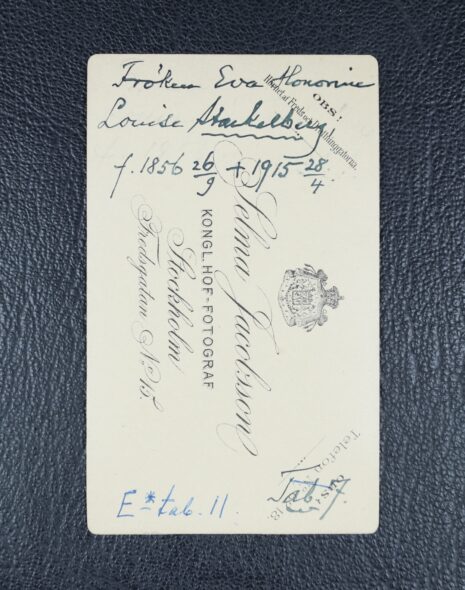 Fröken Eva Honorine
Louise Stackelberg
f. 1856 26/9 + 1915 28/4
OBS!
Hörnet af Fredsgatan
Selma Jacobsson
KONGL. HOF-FOTOGRAF
Stockholm
Fredsgatan No 15.
Telefon
E* tab. 11.
Tab. 7.